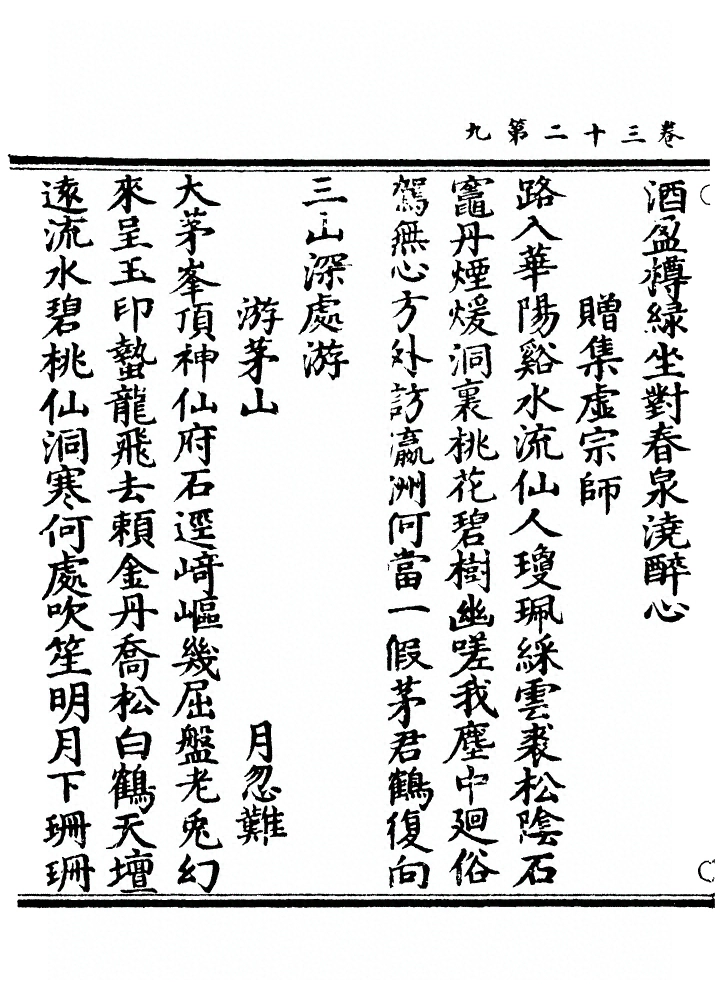 卷三十二第九
酒盈樽緑坐對春泉澆醉心
贈集虛宗師
路入華陽谿水流仙人瓊珮綵雲裘松陰石
竈丹煙煖洞裏桃花碧樹幽嗟我塵中廻俗
駕無心方外訪瀛洲何當一假茅君鶴復向
三山深處游
游茅山 月忽難
大茅峯頂神仙府石逕﨑嶇幾屈盤老兎幻
來呈玉印蟄龍飛去頼金丹喬松白鶴天壇
逺流水碧桃仙洞寒何處吹笙明月下珊珊